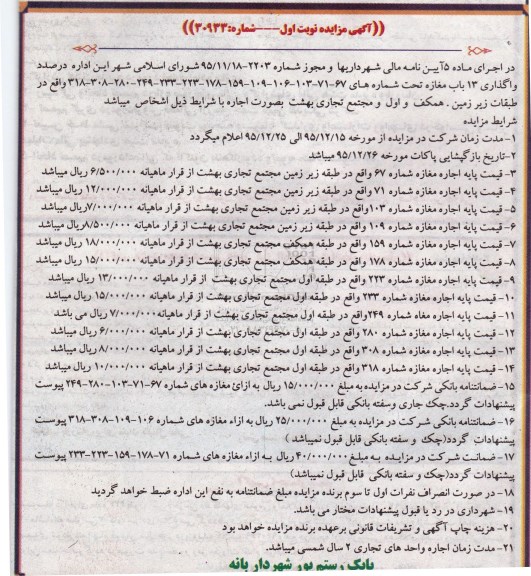 ((آگهی مزایده نوبت اول----شماره:۳۰۹۳۳))
در اجرای ماده ۵ آیین نامه مالی شهرداریها و مجوز شماره ۲۲۰۳-۹۵/۱۱/۱۸ شورای اسلامی شهر این اداره درصدد
واگذاری ۱۳ باب مغازه تحت شماره های ۶۷-۷۱-۱۰۳-۱۰۶-۱۰۹-۱۵۹-۱۷۸-۲۲۳-۲۳۳-۲۴۹-۲۸۰-۳۰۸-۳۱۸ واقع در
طبقات زیر زمین ، همکف و اول و مجتمع تجاری بهشت بصورت اجاره با شرایط ذیل اشخاص میباشد
شرایط مزایده
۱-مدت زمان شرکت در مزایده از مورخه ۹۵/۱۲/۱۵ الی ۹۵/۱۲/۲۵ اعلام میگردد
۲-تاریخ بازگیشایی پاکات مورخه ۹۵/۱۲/۲۶ میباشد
۳- قیمت پایه اجاره مغازه شماره ۶۷ واقع در طبقه زیر زمین مجتمع تجاری بهشت از قرار ماهیانه ۶/۵۰۰/۰۰۰ ریال میباشد
۴- قیمت پایه اجاره مغازه شماره ۷۱ واقع در طبقه زیر زمین مجتمع تجاری بهشت از قرار ماهیانه ۱۲/۰۰۰/۰۰۰ ریال میباشد
۵- قیمت پایه اجاره مغازه شماره ۱۰۳ واقع در طبقه زیر زمین مجتمع تجاری بهشت از قرار ماهیانه ۷/۰۰۰/۰۰۰ریال میباشد
۶- قیمت پایه اجاره مغازه شماره ۱۰۹ واقع در طبقه زیر زمین مجتمع تجاری بهشت از قرار ماهیانه ۸/۵۰۰/۰۰۰ریال میباشد
۷- قیمت پایه اجاره مغازه شماره ۱۵۹ واقع در طبقه همکف مجتمع تجاری بهشت از قرار ماهیانه ۱۸/۰۰۰/۰۰۰ ریال میباشد
۸- قیمت پایه اجاره مغازه شماره ۱۷۸ واقع در طبقه همکف مجتمع تجاری بهشت از قرار ماهیانه ۱۵/۰۰۰/۰۰۰ ریال میباشد
۹- قیمت پایه اجاره مغازه شماره ۲۲۳ واقع در طبقه اول مجتمع تجاری بهشت از قرار ماهیانه ۱۳/۰۰۰/۰۰۰ ریال میباشد
۱۰- قیمت پایه اجاره مغازه شماره ۲۳۳ واقع در طبقه اول مجتمع تجاری بهشت از قرار ماهیانه ۱۵/۰۰۰/۰۰۰ ریال میباشد
۱۱- قیمت پایه اجاره مغازه شماره ۲۴۹واقع در طبقه اول مجتمع تجاری بهشت از قرار ماهیانه۷/۰۰۰/۰۰۰ ریال می باشد
۱۲- قیمت پایه اجاره مغازه شماره ۲۸۰ واقع در طبقه اول مجتمع تجاری بهشت از قرار ماهیانه ۶/۰۰۰/۰۰۰ ریال میباشد
۱۳- قیمت پایه اجاره مغازه شماره ۳۰۸ واقع در طبقه اول مجتمع تجاری بهشت از قرار ماهیانه ۸/۰۰۰/۰۰۰ ریال میباشد
۱۴- قیمت پایه اجاره مغازه شماره ۳۱۸ واقع در طبقه اول مجتمع تجاری بهشت از قرار ماهیانه ۱۰/۰۰۰/۰۰۰ ریال میباشد
۱۵-ضمانتنامه بانکی شرکت در مزایده به مبلغ ۱۵/۰۰۰/۰۰۰ ریال به ازائ مغازه های شماره ۶۷-۷۱-۱۰۳-۲۸۰-۲۴۹ پیوست
پیشنهادات گردد.چک جاری وسفته بانکی قابل قبول نمی باشد.
۱۶- ضمانتنامه بانکی شرکت در مزایده به مبلغ ۲۵/۰۰۰/۰۰۰ ریال به ازاء مغازه های شماره ۱۰۶-۱۰۹-۳۰۸-۳۱۸ پیوست
پیشنهادات گردد(چک و سفته بانکی قابل قبول نمیباشد )
۱۷- ضمانت شرکت در مزایده به مبلغ ۴۰/۰۰۰/۰۰۰ ریال به ازاء مغازه های شماره ۷۱-۱۷۸-۱۵۹-۲۲۳-۲۳۳ پیوست
پیشنهادات گردد(چک و سفته بانکی قابل قبول نمیباشد)
۱۸- در صورت انصراف نفرات اول تا سوم برنده مزایده مبلغ ضمانتنامه به نفع این اداره ضبط خواهد گردید
۱۹- شهرداری در رد یا قبول پیشنهادات مختار می باشد.
۲۰- هزینه چاپ آگهی و تشریفات قانونی برعهده برنده مزایده خواهد بود
۲۱- مدت زمان اجاره واحد های تجاری ۲ سال شمسی میباشد.
بابک رستم پور شهردار بانه